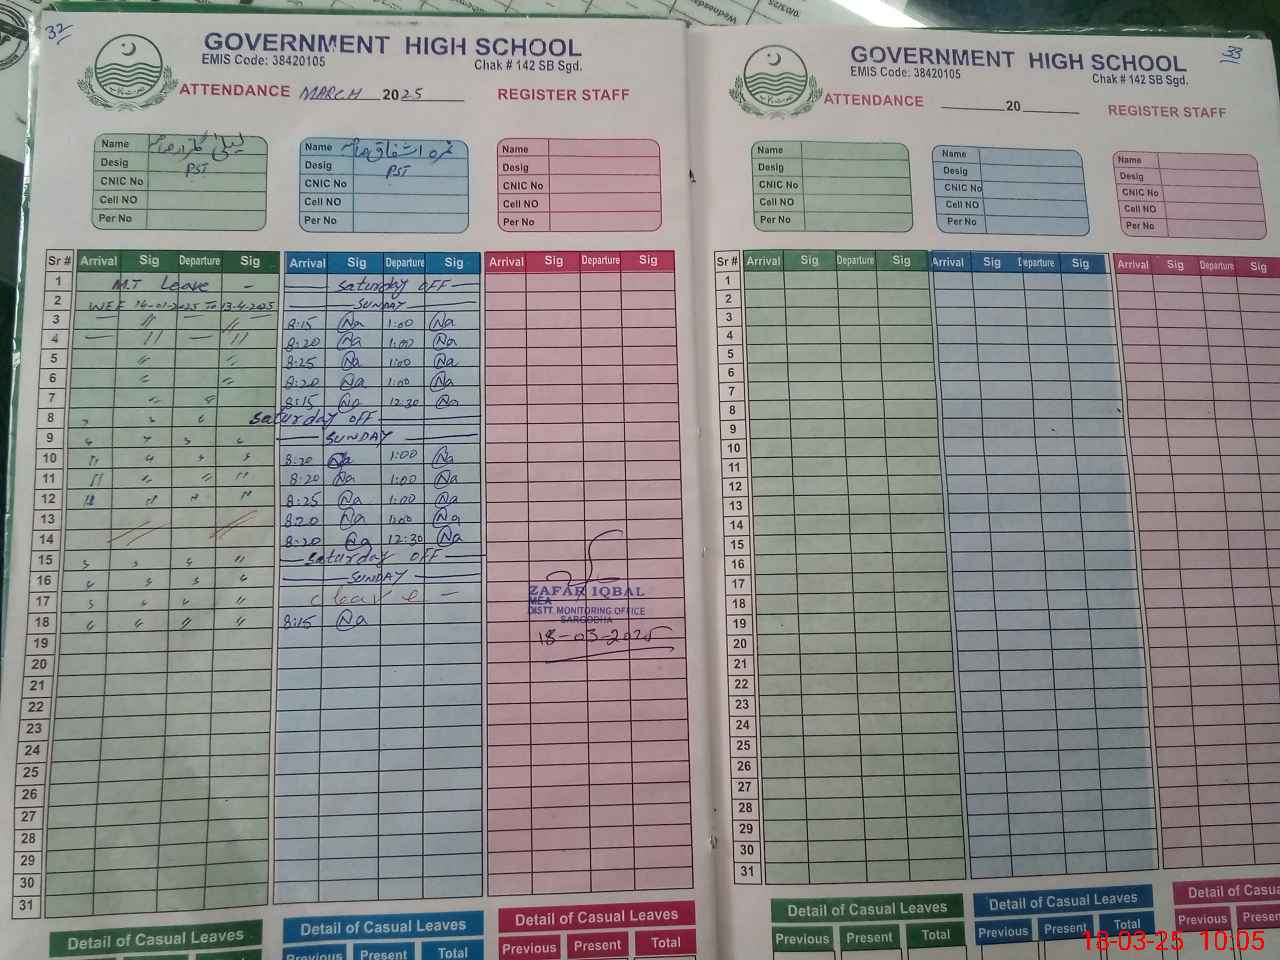 32
GOVERNMENT HIGH SCHOOL
EMIS Code: 38420105 Chak # 142 SB Sgd.
ATTENDANCE MARCH 2025 REGISTER STAFF
Name Name Name
Desig PST Desig PST Desig
CNIC No CNIC No CNIC No
Cell NO Cell NO Cell NO
Per No Per No Per No
Sr # Arrival Sig Departure Sig Arrival Sig Departure Sig Arrival Sig Departure Sig
1 M.T Leave - Saturday OFF
2 WEF 14-01-2025 To 13-4-2025 SUNDAY
3 " " 8:15 Na 1:00 Na
4 — " — " 8:20 Na 1:00 Na
5 " " 8:25 Na 1:00 Na
6 " " 8:20 Na 1:00 Na
7 " " 8:15 Na 12:30 Na
8 " " " Saturday OFF
9 " " " " SUNDAY
10 " " " " 8:20 Na 1:00 Na
11 " " " " 8:20 Na 1:00 Na
12 " " " " 8:25 Na 1:00 Na
13 8:20 Na 1:00 Na
14 8:20 Na 12:30 Na
15 " " " " Saturday OFF
16 " " " " SUNDAY
17 " " " " c leave -
18 " " " " 8:15 Na
19
20
21
22
23
24
25
26
27
28
29
30
31
ZAFAR IQBAL
MEA
DISTT. MONITORING OFFICE
SARGODHA
18-03-2025
Detail of Casual Leaves Detail of Casual Leaves Detail of Casual Leaves
Previous Present Total
33
GOVERNMENT HIGH SCHOOL
EMIS Code: 38420105 Chak # 142 SB Sgd.
ATTENDANCE ______20____ REGISTER STAFF
Name Name Name
Desig Desig Desig
CNIC No CNIC No CNIC No
Cell NO Cell NO Cell NO
Per No Per No Per No
Sr # Arrival Sig Departure Sig Arrival Sig Departure Sig Arrival Sig Departure Sig
1
2
3
4
5
6
7
8
9
10
11
12
13
14
15
16
17
18
19
20
21
22
23
24
25
26
27
28
29
30
31
Detail of Casual Leaves Detail of Casual Leaves Detail of Casual
Previous Present Total Previous Present Total Previous
18-03-25 10:05